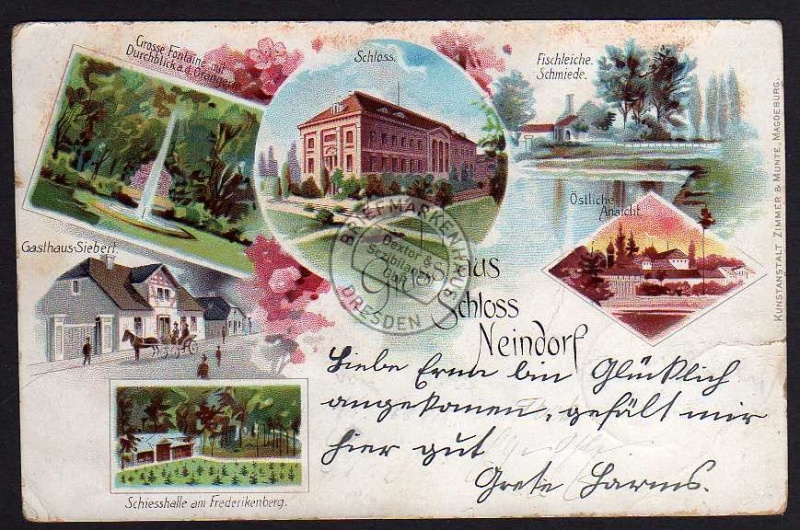 Grosse Fontaine mit
Durchblick a.d. Orangerie
Schloss.
Fischleiche.
Schmiede.
Östliche
Ansicht
Gasthaus-Siebert.
Gruss aus
Schloss
Neindorf
Schiesshalle am Frederikenberg.
KUNSTANSTALT ZIMMER & MUNTE, MAGDEBURG.
BRIEFMARKENHAUS
Dexter &
GbR
DRESDEN
Liebe Erna bin Glücklich
angekomen, gefält mir
hier gut
Grete Harms.